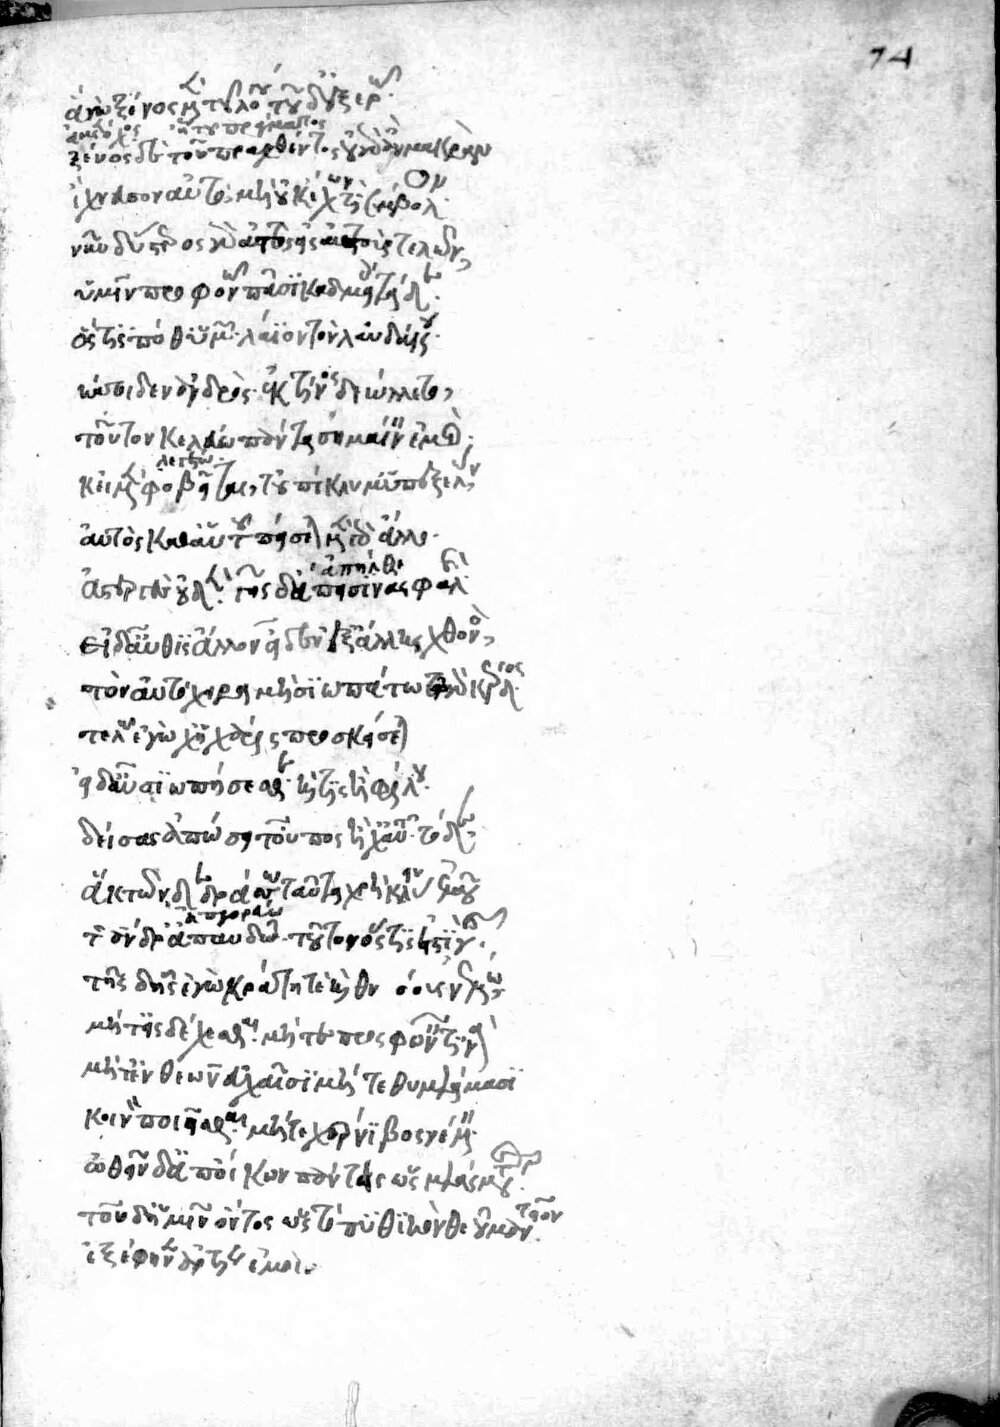 ἁγὼ ξένος μὲν τοῦ λόγου τοῦδ' ἐξερῶ
ἀμέτοχος τοῦ πράγματος
ξένος δὲ τοῦ πραχθέντος· οὐ γὰρ ἂν μακρὰν
ἴχνευον αὐτὸς, μὴ οὐκ ἔχων τι σύμβολον·
νῦν δ' ὕστερος γὰρ ἀστὸς εἰς ἀστοὺς τελῶ,
ὑμῖν προφωνῶ πᾶσι καδμείοις τάδε·
ὅστις ποθ' ὑμῶν λάϊον τὸν λαβδάκου
κάτοιδεν ἀνδρὸς ἐκ τίνος διώλλετο,
τοῦτον κελεύω πάντα σημαίνειν ἐμοί·
κεἰ μὲν φοβεῖται, τοὐπίκλημ' ὑπεξελὼν
αὐτὸς καθ' αὑτοῦ· πείσεται γὰρ ἄλλο μὲν
ἀπελθ
ἀστεργὲς οὐδέν· γῆς δ' ἄπεισιν ἀσφαλής·
εἰ δ' αὖ τις ἄλλον οἶδεν ἐξ ἄλλης χθονὸς,
τὸν αὐτόχειρα μὴ σιωπάτω· τὸ γὰρ κέρδος
τελῶ 'γὼ χἡ χάρις προσκείσεται
εἰ δ' αὖ σιωπήσεσθε· καί τις ἢ φίλου
δείσας ἀπώσει τοὖπος ἢ χαὐτοῦ τόδε·
ἃκ τῶνδε δράσω ταῦτα χρὴ κλύειν ἐμοῦ
ἀπαγορεύω
τὸν ἄνδρ' ἀπαυδῶ τοῦτον ὅστις ἐστὶ γῆς
τῆσδ' ἧς ἐγὼ κράτη τε καὶ θρόνους νέμω,
μήτ' εἰσδέχεσθαι· μήτε προσφωνεῖν τινά
μήτ' ἐν θεῶν εὐχαῖσι μήτε θύμασι
κοινὸν ποιεῖσθαι· μήτε χέρνιβος νέμειν·
ὠθεῖν δ' ἀπ' οἴκων πάντας ὡς μιάσματος
τοῦδ' ἡμῖν ὄντος ὡς τὸ πυθικὸν θεοῦ μαντεῖον
ἐξέφηνεν ἀρτίως ἐμοί.